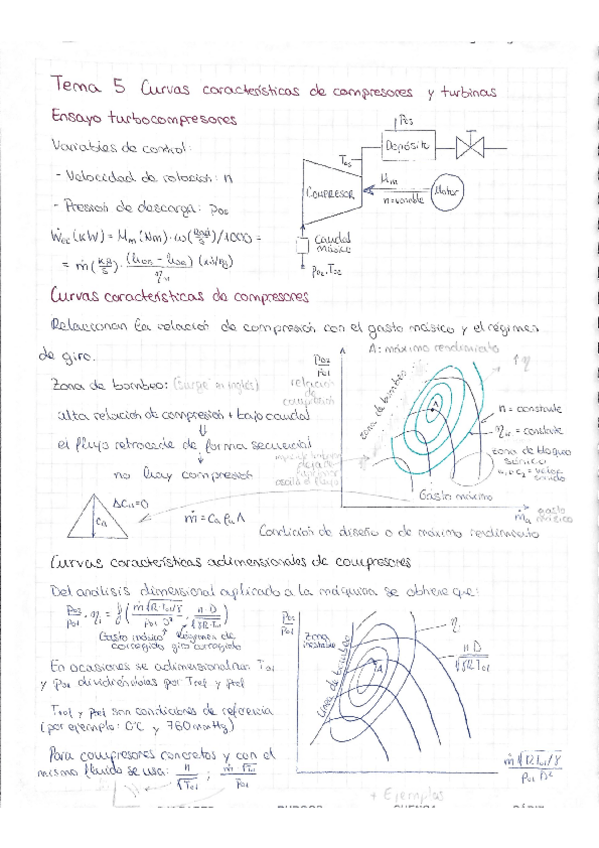 Tema 5 Curvas características de compresores y turbinas
Ensayo turbocompresores
Variables de control:
- Velocidad de rotación: n
- Presión de descarga: p05
Depósito
P05
T05
COMPRESOR
Mm
n=variable
Motor
Caudal
másico
P02, T02
Ẇcc (kW) = Mm (Nm) · ω (rad/s) / 1000 =
= ṁ (kg/s) ·
Curvas características de compresores
Relacionan la relación de compresión con el gasto másico y el régimen
de giro.
Zona de bombeo: (Surge en inglés)
alta relación de compresión + bajo caudal
⇓
el flujo retrocede de forma secuencial
↓
no hay compresión
A: máximo rendimiento
↑η
relación
de
compresión
zona de bombeo
A
n = constante
= constante
zona de bloqueo
sónico
Gasto máximo
gasto
másico
ΔCu=0
Ca
ṁ = Ca ρa A
Condición de diseño o de máximo rendimiento
Curvas características adimensionales de compresores
Del análisis dimensional aplicado a la máquina se obtiene que:
Gasto másico
corregido
Régimen de
giro corregido
En ocasiones se adimensionalizan T01
y p01 dividiéndolas por Tref y pref
Tref y pref son condiciones de referencia
(por ejemplo: 0ºC y 760 mmHg)
Para compresores concretos y con el
mismo fluido se usa: n/√T01 ; ṁ√T01/P01
Zona
inestable
Línea de bombeo
A
η
n D
+ Ejemplos